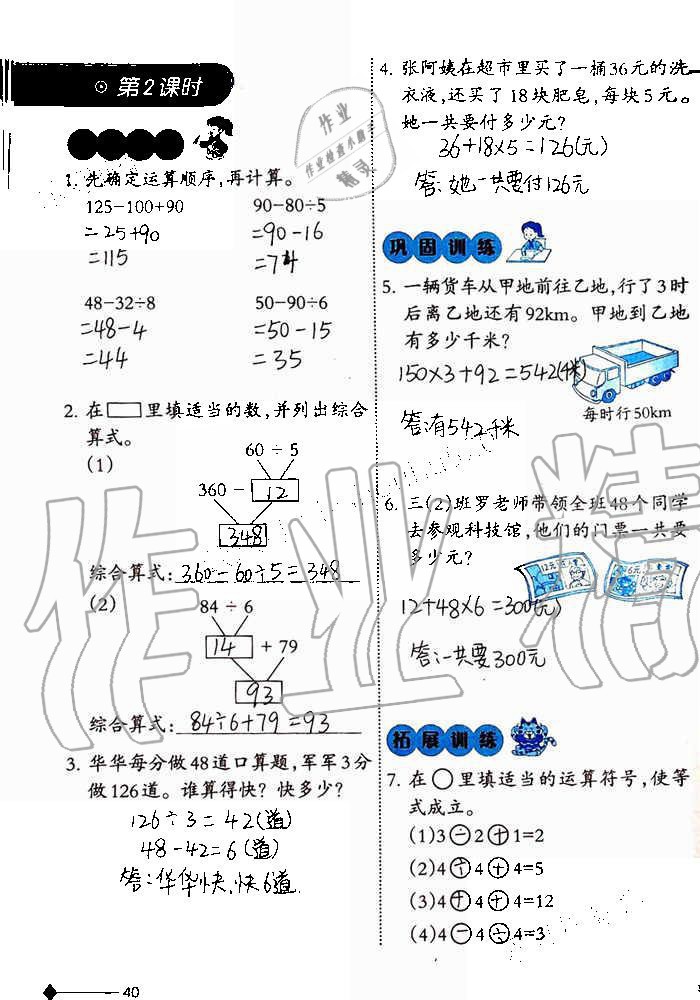 第2课时
1. 先确定运算顺序,再计算。
125−100+90  90−80÷5
=25+90  =90−16
=115  =74
48−32÷8  50−90÷6
=48−4  =50−15
=44  =35
2. 在□里填适当的数,并列出综合
算式。
(1)
60 ÷ 5
360 − 12
348
综合算式: 360−60÷5=348
(2)
84 ÷ 6
14 + 79
93
综合算式: 84÷6+79=93
3. 华华每分做48道口算题,军军3分
做126道。谁算得快? 快多少?
126÷3=42(道)
48−42=6(道)
答:华华快,快6道.
40
4. 张阿姨在超市里买了一桶36元的洗
衣液,还买了18块肥皂,每块5元。
她一共要付多少元?
36+18×5=126(元)
答:她一共要付126元
巩固训练
5. 一辆货车从甲地前往乙地,行了3时
后离乙地还有92km。甲地到乙地
有多少千米?
150×3+92=542(千米)
每时行50km
答:有542千米
6. 三(2)班罗老师带领全班48个同学
去参观科技馆,他们的门票一共要
多少元?
12元 6元
12+48×6=300(元)
答:一共要300元
拓展训练
7. 在○里填适当的运算符号,使等
式成立。
(1)3−2+1=2
(2)4÷4+4=5
(3)4+4+4=12
(4)4−4÷4=3
作业精
作业
作业检查小助手
精灵